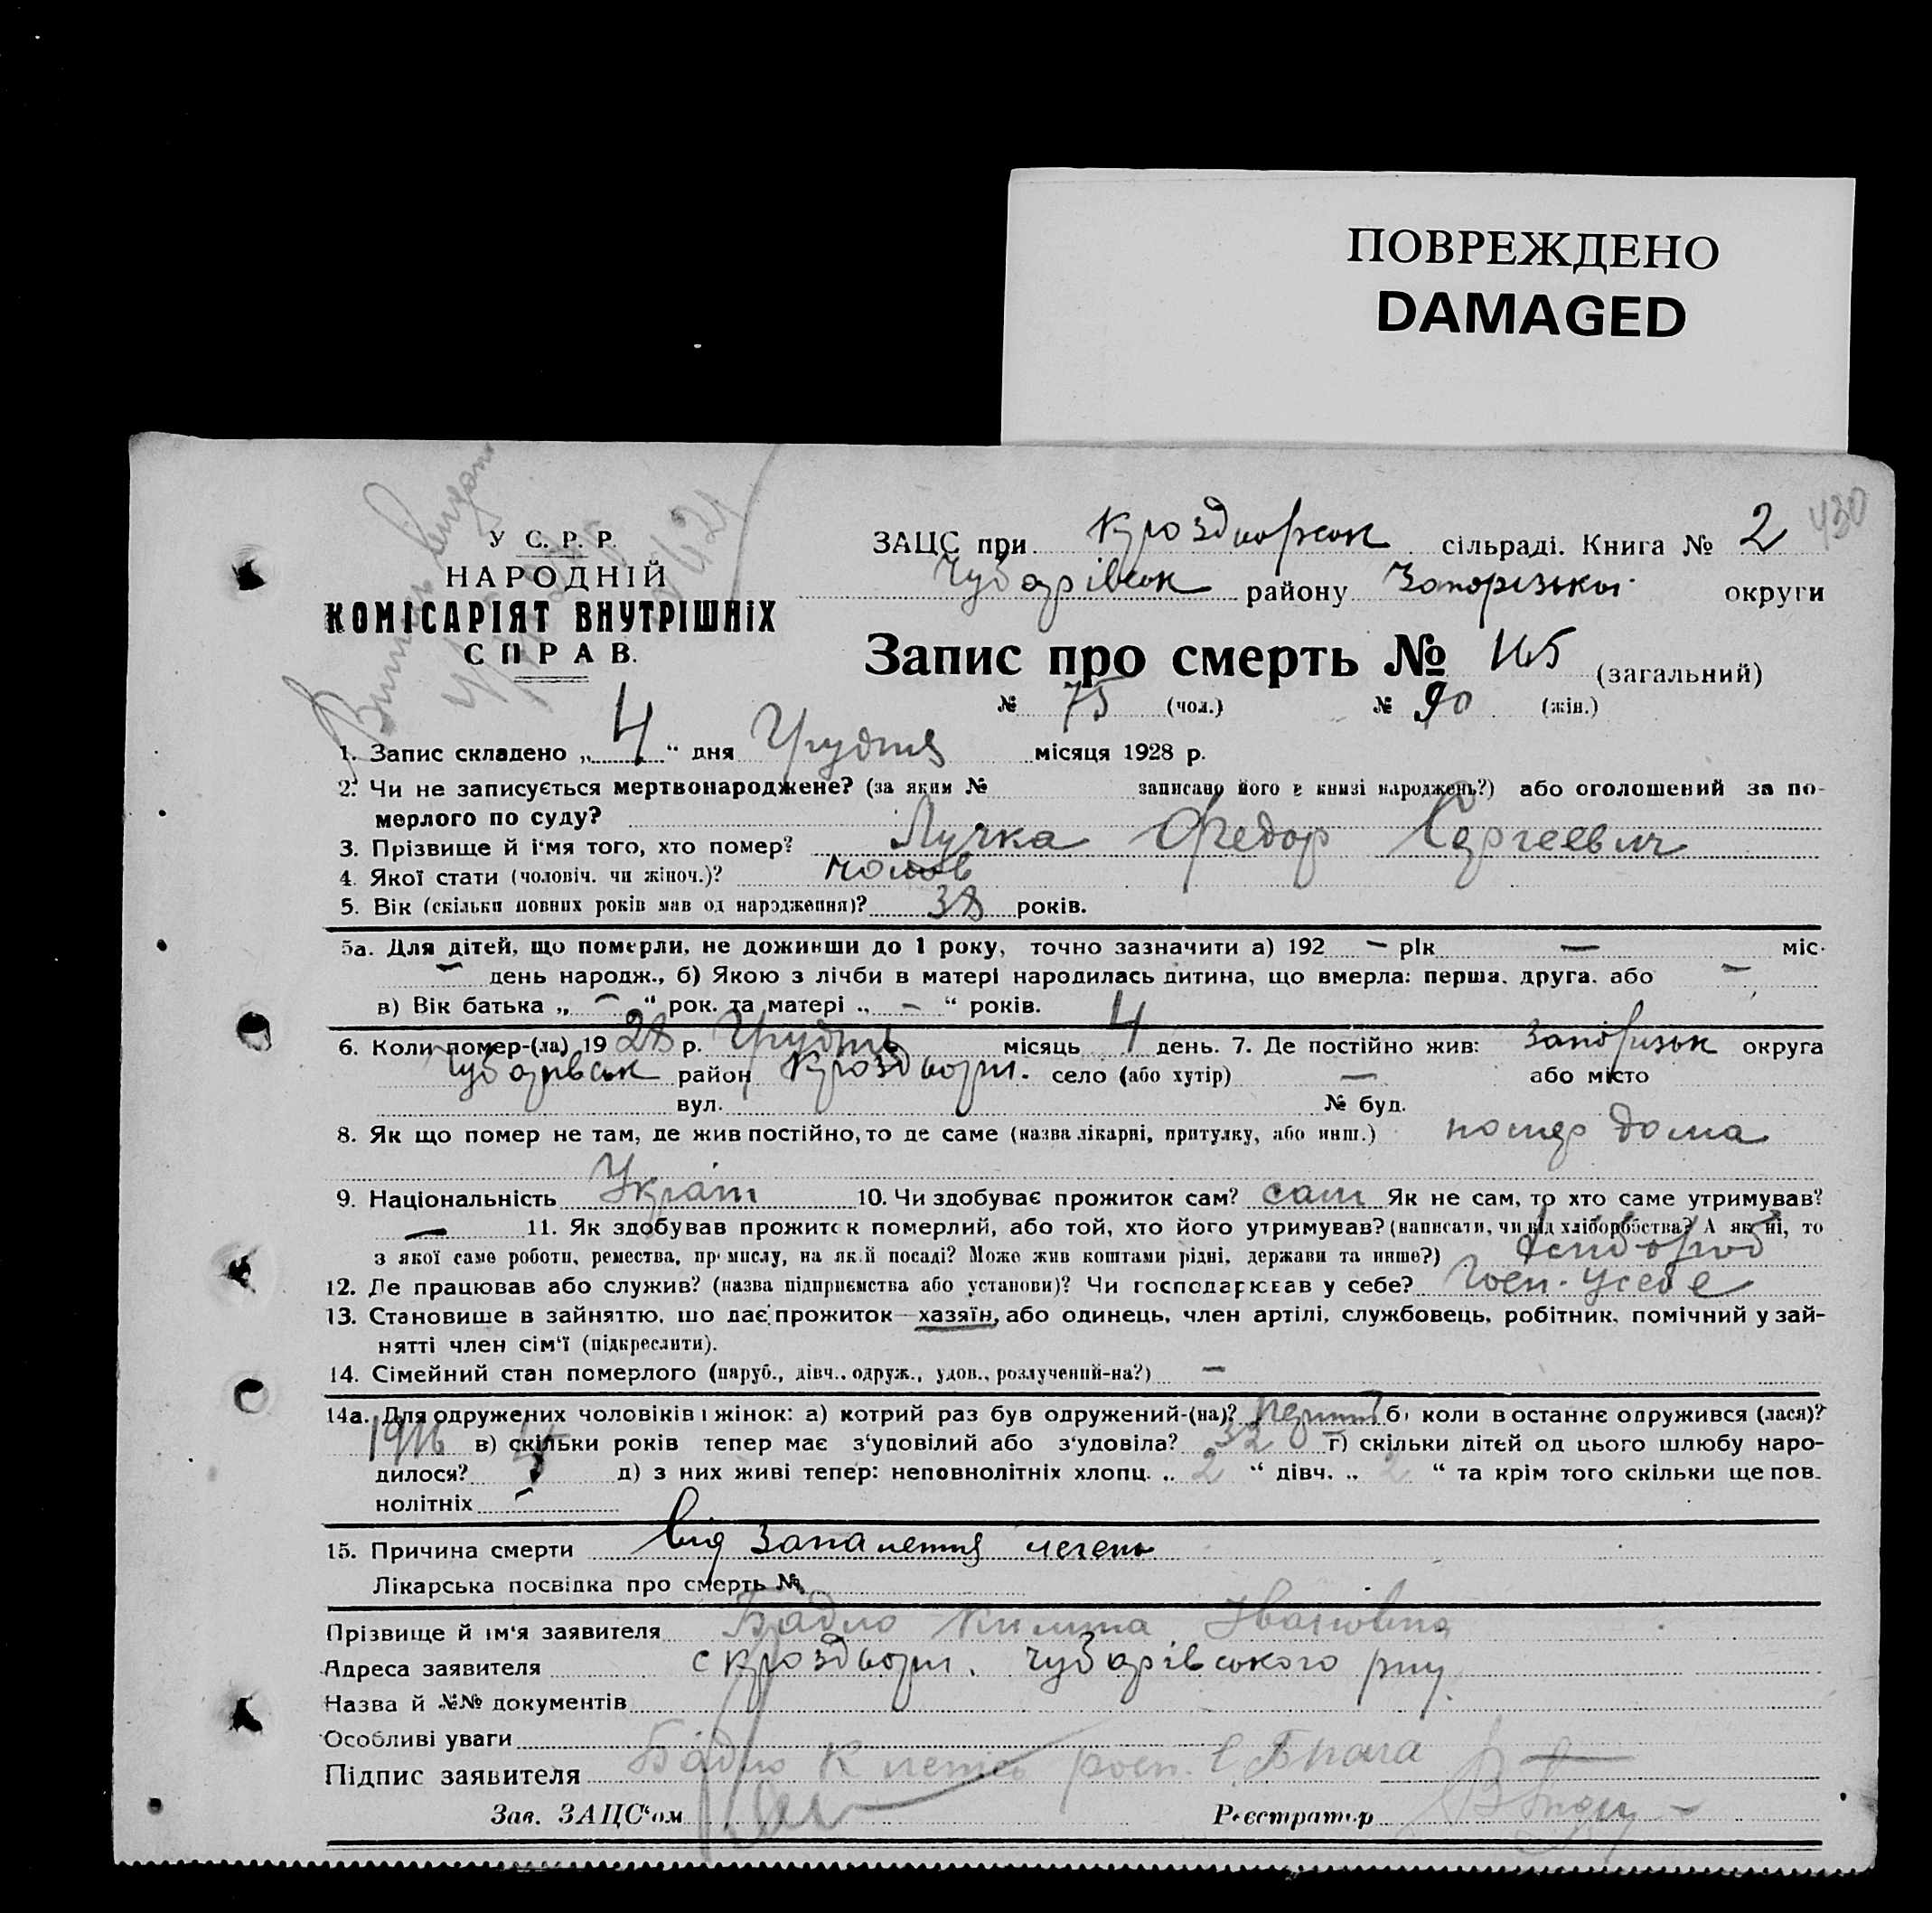 ПОВРЕЖДЕНО
DAMAGED
У С. Р. Р.
НАРОДНІЙ
КОМІСАРІЯТ ВНУТРІШНІХ
СПРАВ.
430
ЗАЦС при сільраді. Книга № 2
Чубарівськ району Запорізької округи
Запис про смерть № 165 (загальний)
№ 75 (чол.) № 90 (жін.)
1. Запис складено „ 4 “ дня Грудня місяця 1928 р.
2. Чи не записується мертвонароджене? (за яким № записано його в книзі народжень?) або оголошений за по-
мерлого по суду?
3. Прізвище й і'мя того, хто помер? Лучка Федор Сергеевич
4. Якої статі (чоловіч. чи жіноч.)? чолов
5. Вік (скільки повних років мав од народження)? 38 років.
5а. Для дітей, що померли, не доживши до 1 року, точно зазначити а) 192 — рік — міс.
— день народж., б) Якою з лічби в матері народилась дитина, що вмерла: перша, друга, або —
в) Вік батька „ — “ рок. та матері „ — “ років.
6. Коли помер-(ла) 19 28 р. Грудня місяць 4 день. 7. Де постійно жив: Запоризьк округа
Чубарівськ район село (або хутір) — або місто
вул. № буд.
8. Як що помер не там, де жив постійно, то де саме (назва лікарні, притулку, або инш.) дома
9. Національність Україн 10. Чи здобуває прожиток сам? сам Як не сам, то хто саме утримував?
— 11. Як здобував прожиток померлий, або той, хто його утримував? (написати, чи від хліборобства? А як ні, то
з якої саме роботи, ремества, промислу, на якій посаді? Може жив коштами рідні, держави та инше?)
12. Де працював або служив? (назва підприємства або установи)? Чи господарював у себе? Госп. усебе
13. Становище в зайняттю, що дає прожиток—хазяїн, або одинець, член артілі, службовець, робітник, помічний у зай-
нятті член сім'ї (підкреслити).
14. Сімейний стан померлого (паруб., дівч., одруж., удов., розлучений-на?) —
14а. Для одружених чоловіків і жінок: а) котрий раз був одружений-(на)? перший б) коли востаннє одружився (лася)?
1916 в) скільки років тепер має з'удовілий або з'удовіла? 32 г) скільки дітей од цього шлюбу наро-
дилося? д) з них живі тепер: неповнолітніх хлопц. „ 2 “ дівч. „ 2 “ та крім того скільки ще пов-
нолітніх —
15. Причина смерти від запалення легень
Лікарська посвідка про смерть №
Прізвище й ім'я заявителя Бадло Ивановна
Адреса заявителя с Чубарівського р-ну
Назва й №№ документів
Особливі уваги
Підпис заявителя Бадло
Зав. ЗАЦС'ом Реєстратор